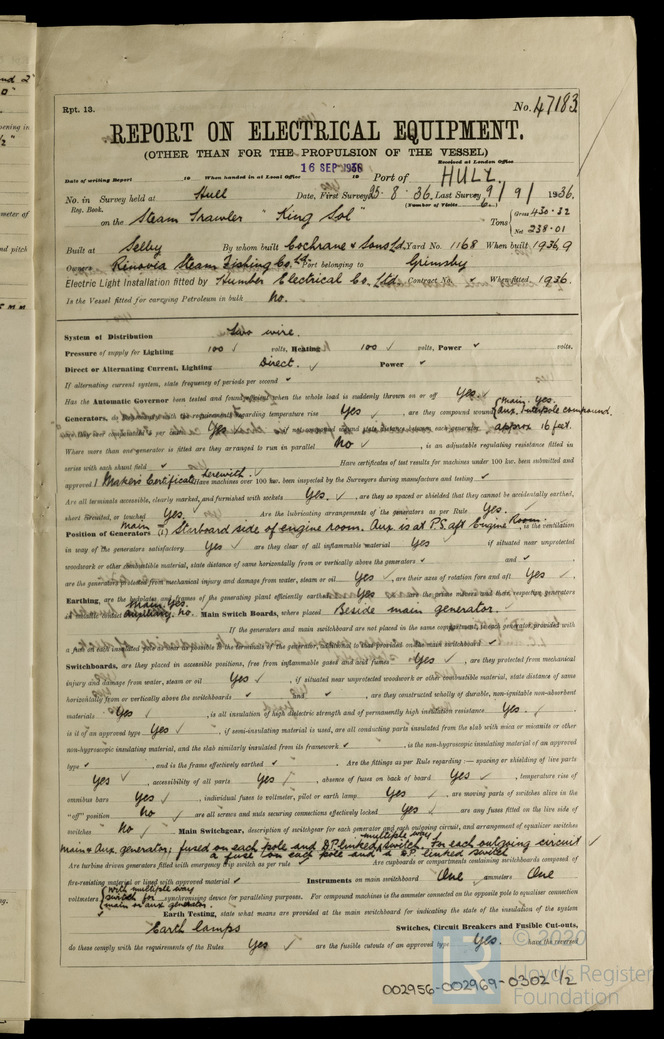 Rpt. 13.
No. 47183
REPORT ON ELECTRICAL EQUIPMENT.
(OTHER THAN FOR THE PROPULSION OF THE VESSEL)
Received at London Office
16 SEP 1936
Date of writing Report 19 When handed in at Local Office 19 Port of HULL
No. in Survey held at Hull Date, First Survey 25.8.36. Last Survey 9/9/1936.
Reg. Book. (Number of Visits 6.)
on the Steam Trawler "King Sol" Tons Gross 430.32
Net 238.01
Built at Selby By whom built Cochrane & Sons Ld. Yard No. 1168 When built 1936, 9
Owners Rinovia Steam Fishing Co. Ld. Port belonging to Grimsby
Electric Light Installation fitted by Humber Electrical Co. Ltd. Contract No. When fitted 1936.
Is the Vessel fitted for carrying Petroleum in bulk No.
System of Distribution Two wire.
Pressure of supply for Lighting 100 volts, Heating 100 volts, Power volts,
Direct or Alternating Current, Lighting Direct. Power
If alternating current system, state frequency of periods per second
Has the Automatic Governor been tested and found efficient when the whole load is suddenly thrown on or off Yes.
Generators, do they comply with the requirements regarding temperature rise Yes, are they compound wound { Main. Yes.
Aux. Interpole compound.
Yes approx 16 feet.
Where more than one generator is fitted are they arranged to run in parallel No, is an adjustable regulating resistance fitted in
series with each shunt field Have certificates of test results for machines under 100 kw. been submitted and
approved 1 Maker's Certificate herewith. Have machines over 100 kw. been inspected by the Surveyors during manufacture and testing
Are all terminals accessible, clearly marked, and furnished with sockets Yes., are they so spaced or shielded that they cannot be accidentally earthed,
short circuited, or touched Yes. Are the lubricating arrangements of the generators as per Rule Yes.
Position of Generators Main (1) Starboard side of engine room. Aux. is at P.S. aft Engine Room., is the ventilation
in way of the generators satisfactory Yes are they clear of all inflammable material Yes if situated near unprotected
woodwork or other combustible material, state distance of same horizontally from or vertically above the generators and
are the generators protected from mechanical injury and damage from water, steam or oil Yes, are their axes of rotation fore and aft Yes
Earthing, are the bedplates and frames of the generating plant efficiently earthed Yes are the prime movers and their respective generators
in metallic contact Main. Yes. Auxiliary. No. Main Switch Boards, where placed Beside main generator.
If the generators and main switchboard are not placed in the same compartment, is each generator provided with
a fuse on each insulated pole as near as possible to the terminals of the generator, additional to that provided on the main switchboard
Switchboards, are they placed in accessible positions, free from inflammable gases and acid fumes Yes, are they protected from mechanical
injury and damage from water, steam or oil Yes, if situated near unprotected woodwork or other combustible material, state distance of same
horizontally from or vertically above the switchboards and, are they constructed wholly of durable, non-ignitable non-absorbent
materials Yes, is all insulation of high dielectric strength and of permanently high insulation resistance Yes.
is it of an approved type Yes, if semi-insulating material is used, are all conducting parts insulated from the slab with mica or micanite or other
non-hygroscopic insulating material, and the slab similarly insulated from its framework, is the non-hygroscopic insulating material of an approved
type, and is the frame effectively earthed Are the fittings as per Rule regarding :— spacing or shielding of live parts
Yes, accessibility of all parts Yes, absence of fuses on back of board Yes, temperature rise of
omnibus bars Yes, individual fuses to voltmeter, pilot or earth lamp Yes, are moving parts of switches alive in the
"off" position No are all screws and nuts securing connections effectively locked Yes are any fuses fitted on the live side of
switches No Main Switchgear, description of switchgear for each generator and each outgoing circuit, and arrangement of equalizer switches
main & Aux. generator; fused on each pole and D.P. linked multiple way switch. For each outgoing circuit
a fuse on each pole and a D.P. linked switch
Are turbine driven generators fitted with emergency trip switch as per rule Are cupboards or compartments containing switchboards composed of
fire-resisting material or lined with approved material Instruments on main switchboard One ammeters One
voltmeters { with multiple way switch for main or aux generator. synchronising device for paralleling purposes. For compound machines is the ammeter connected on the opposite pole to equaliser connection
Earth Testing, state what means are provided at the main switchboard for indicating the state of the insulation of the system
Earth lamps Switches, Circuit Breakers and Fusible Cut-outs,
do these comply with the requirements of the Rules Yes are the fusible cutouts of an approved type Yes. have the reversed
© 2020
LR
Lloyd's Register
Foundation
002956-002969-0302 1/2